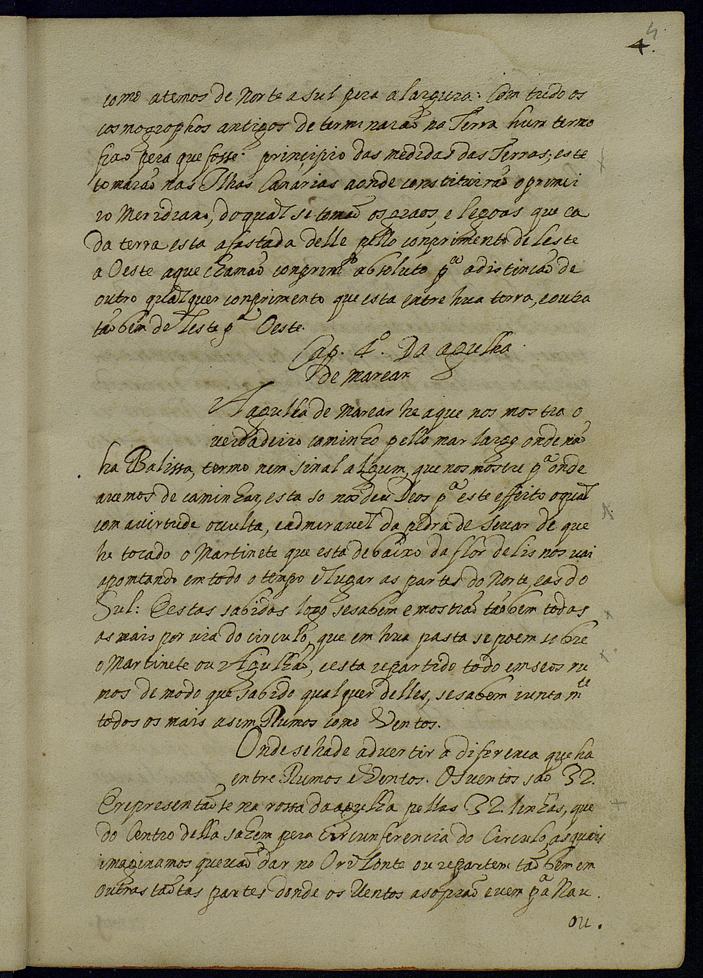 4
4.
como atemos de Norte a sul pera alargura: Com tudo os
cosmogrophos antigos determinaraõ na Terra hum termo
fixo pera que fosse principio das medidas das Terras, este
tomaraõ nas Ilhas Canarias aonde constituiraõ oprimei
ro Meridiano, doqual se tomaõ os graos, e legoas que ca
da terra esta afastada delle pello comprimento de leste
a Oeste aque chamaõ comprimto absoluto pa adistincaõ de
outro qualquer comprimento que esta entre hua terra, e outra
taõbem de leste pa Oeste.
Cap. 4o. Da agulha
de marear
Agulha de marear he aque nos mostra o
verdadeiro caminho pello mar largo onde naõ
ha Balissa, termo nem sinal algum, que nos mostre pa onde
avemos de caminhar, esta so nos deu Deos pa este effeito oqual
com avirtude oculta, e admiravel da pedra de sevar de que
he tocado o Martinete que esta debaixo da flor de lis nos vai
apontando em todo o tempo e lugar as partes do Norte, eas do
Sul: E estas sabidas logo se sabem e mostraõ taõbem todas
as mais por via do circulo, que em hua pasta se poem sobre
o Martinete ou Agulhaõ, e esta repartido todo em seos ru
mos de modo que sabido qualquer delles, se sabem iuntamte
todos os mais asim Rumos como Ventos.
Onde se hade advertir a diferenca que ha
entre Rumos e Ventos. Os ventos saõ 32.
E representaõse na rossa da agulha pellas 32 linhas, que
do Centro della sahem pera circunferencia do Circulo, as quais
imaginamos que vaõ dar no Orizonte ou repartem taõbem em
outras taõtas partes donde os Ventos asopraõ e vem pa Nau.
ou.